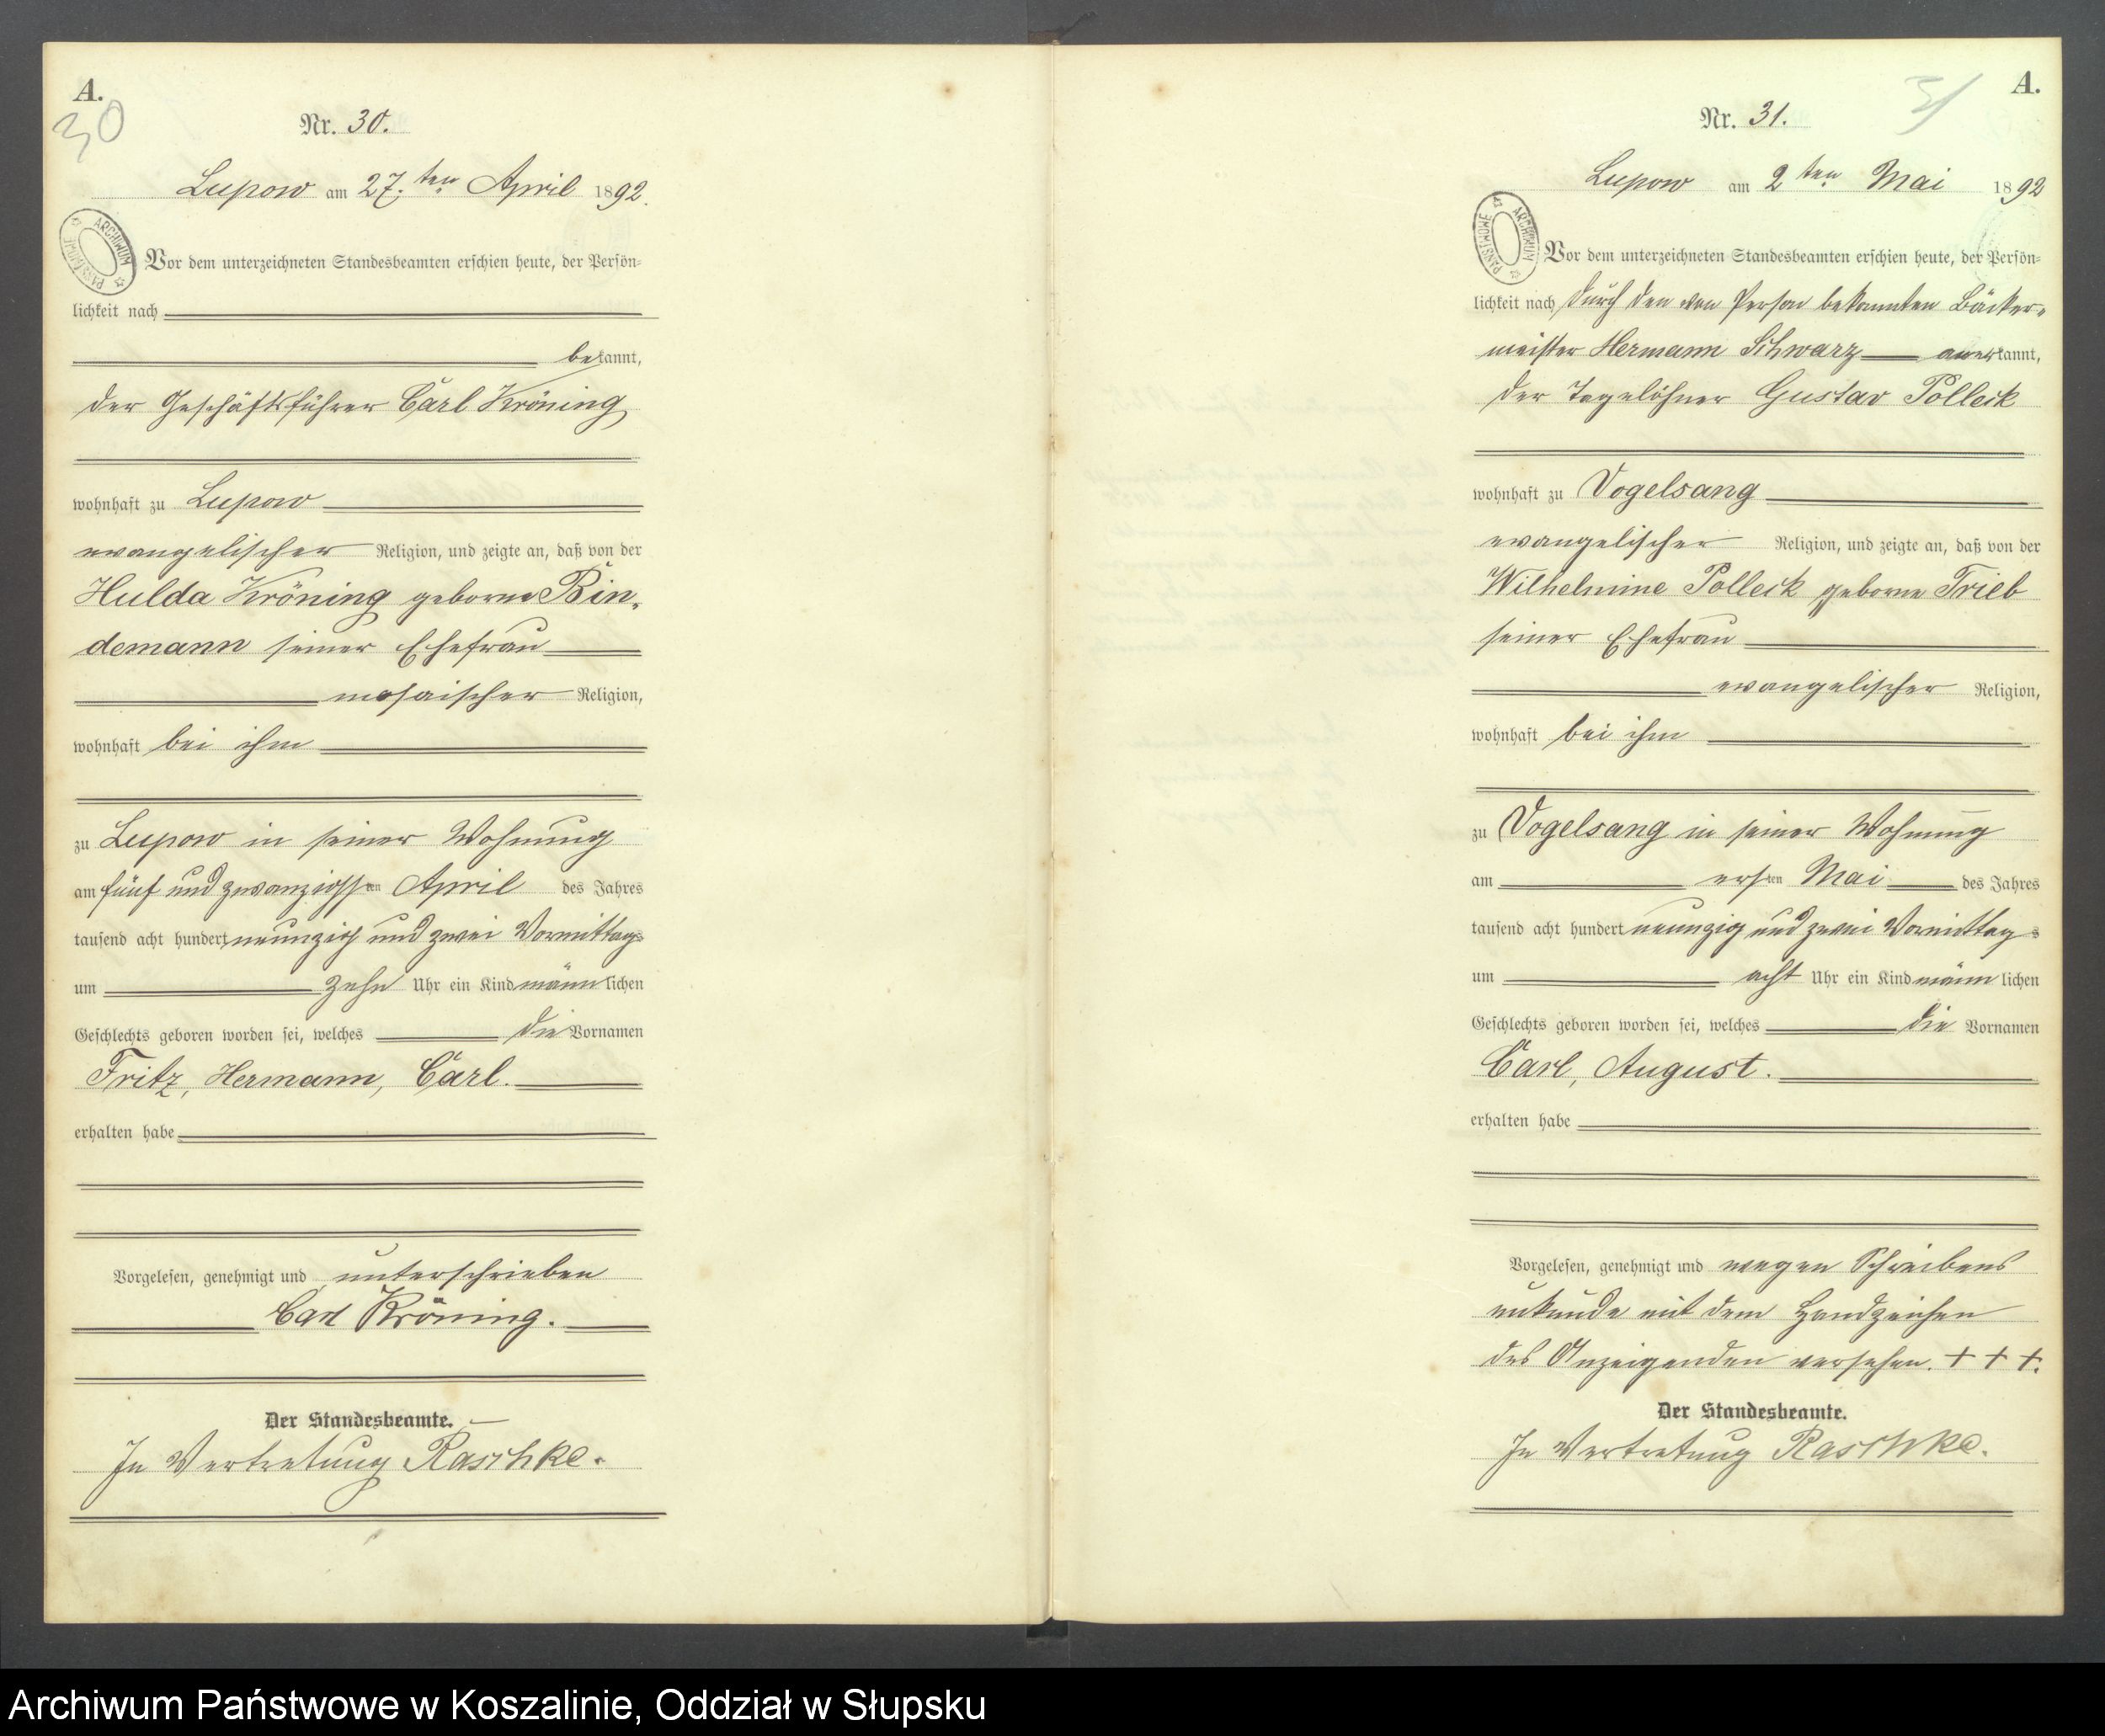 A.
30
Nr. 30.
Lupow am 27.ten April 1892.
ARCHIWUM PAŃSTWOWE
Vor dem unterzeichneten Standesbeamten erschien heute, der Persön=
lichkeit nach
bekannt,
der Geschäftsführer Carl Kröning
wohnhaft zu Lupow
evangelischer Religion, und zeigte an, daß von der
Hulda Kröning geborne Bin-
demann seiner Ehefrau
mosaischer Religion,
wohnhaft bei ihm
zu Lupow in seiner Wohnung
am fünf und zwanzigsten April des Jahres
tausend acht hundert neunzig und zwei Vormittags
um zehn Uhr ein Kind männlichen
Geschlechts geboren worden sei, welches die Vornamen
Fritz, Hermann, Carl.
erhalten habe
Vorgelesen, genehmigt und unterschrieben
Carl Kröning.
Der Standesbeamte.
In Vertretung Raschke.
A.
31
Nr. 31.
Lupow am 2ten Mai 1892
ARCHIWUM PAŃSTWOWE
Vor dem unterzeichneten Standesbeamten erschien heute, der Persön=
lichkeit nach durch den von Person bekannten Bäcker-
meister Hermann Schwarz anerkannt,
der Tagelöhner Gustav Polleck
wohnhaft zu Vogelsang
evangelischer Religion, und zeigte an, daß von der
Wilhelmine Polleck geborne Trieb
seiner Ehefrau
evangelischer Religion,
wohnhaft bei ihm
zu Vogelsang in seiner Wohnung
am ersten Mai des Jahres
tausend acht hundert neunzig und zwei Vormittags
um acht Uhr ein Kind männlichen
Geschlechts geboren worden sei, welches die Vornamen
Carl, August.
erhalten habe
Vorgelesen, genehmigt und wegen Schreibens
unkunde mit dem Handzeichen
des Anzeigenden versehen. + + +.
Der Standesbeamte.
In Vertretung Raschke.
Archiwum Państwowe w Koszalinie, Oddział w Słupsku